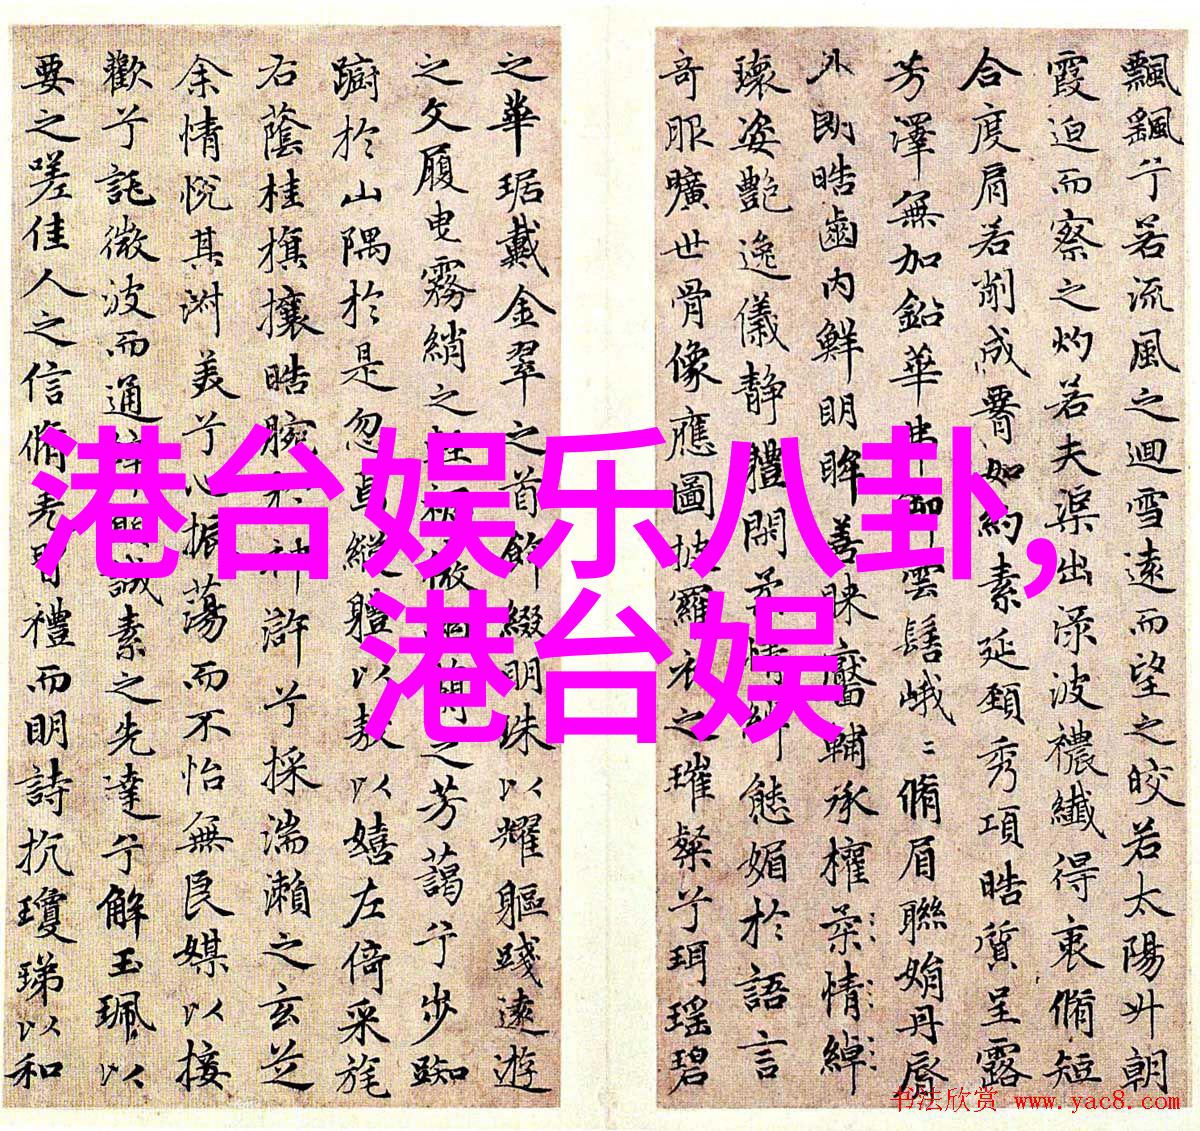 飄飖兮若流風之迴雪遠而望之皎若太陽升朝
霞迫而察之灼若夫渠出渌波襛纖得衷脩短
合度肩若削成署如約素延頸秀項皓質呈露
芳澤無加鉛華弗御雲髻峨〻脩眉聯娟丹脣
外朗皓齒内鮮明眸善睞靨輔承權
瓌姿艷逸儀静體閑柔情綽態媚於語言
奇服曠世骨像應圖披羅衣之璀粲兮珥瑶碧
之華琚戴金翠之首飾綴明珠以耀軀踐遠遊
之文履曳霧綃之輕裾微幽蘭之芳藹兮步踟
蹰於山隅於是忽焉縱體以敖以嬉左倚采旄
右蔭桂旗攘皓腕於神滸兮採湍瀨之玄芝
余情悅其淑美兮心振蕩而不怡無良媒以接
歡兮託微波而通辭願誠素之先達兮解玉珮以
要之嗟佳人之信脩羌習禮而明詩抗瓊珶以和
港台娱乐八卦,
港台娱
书法欣赏 www.yac8.com